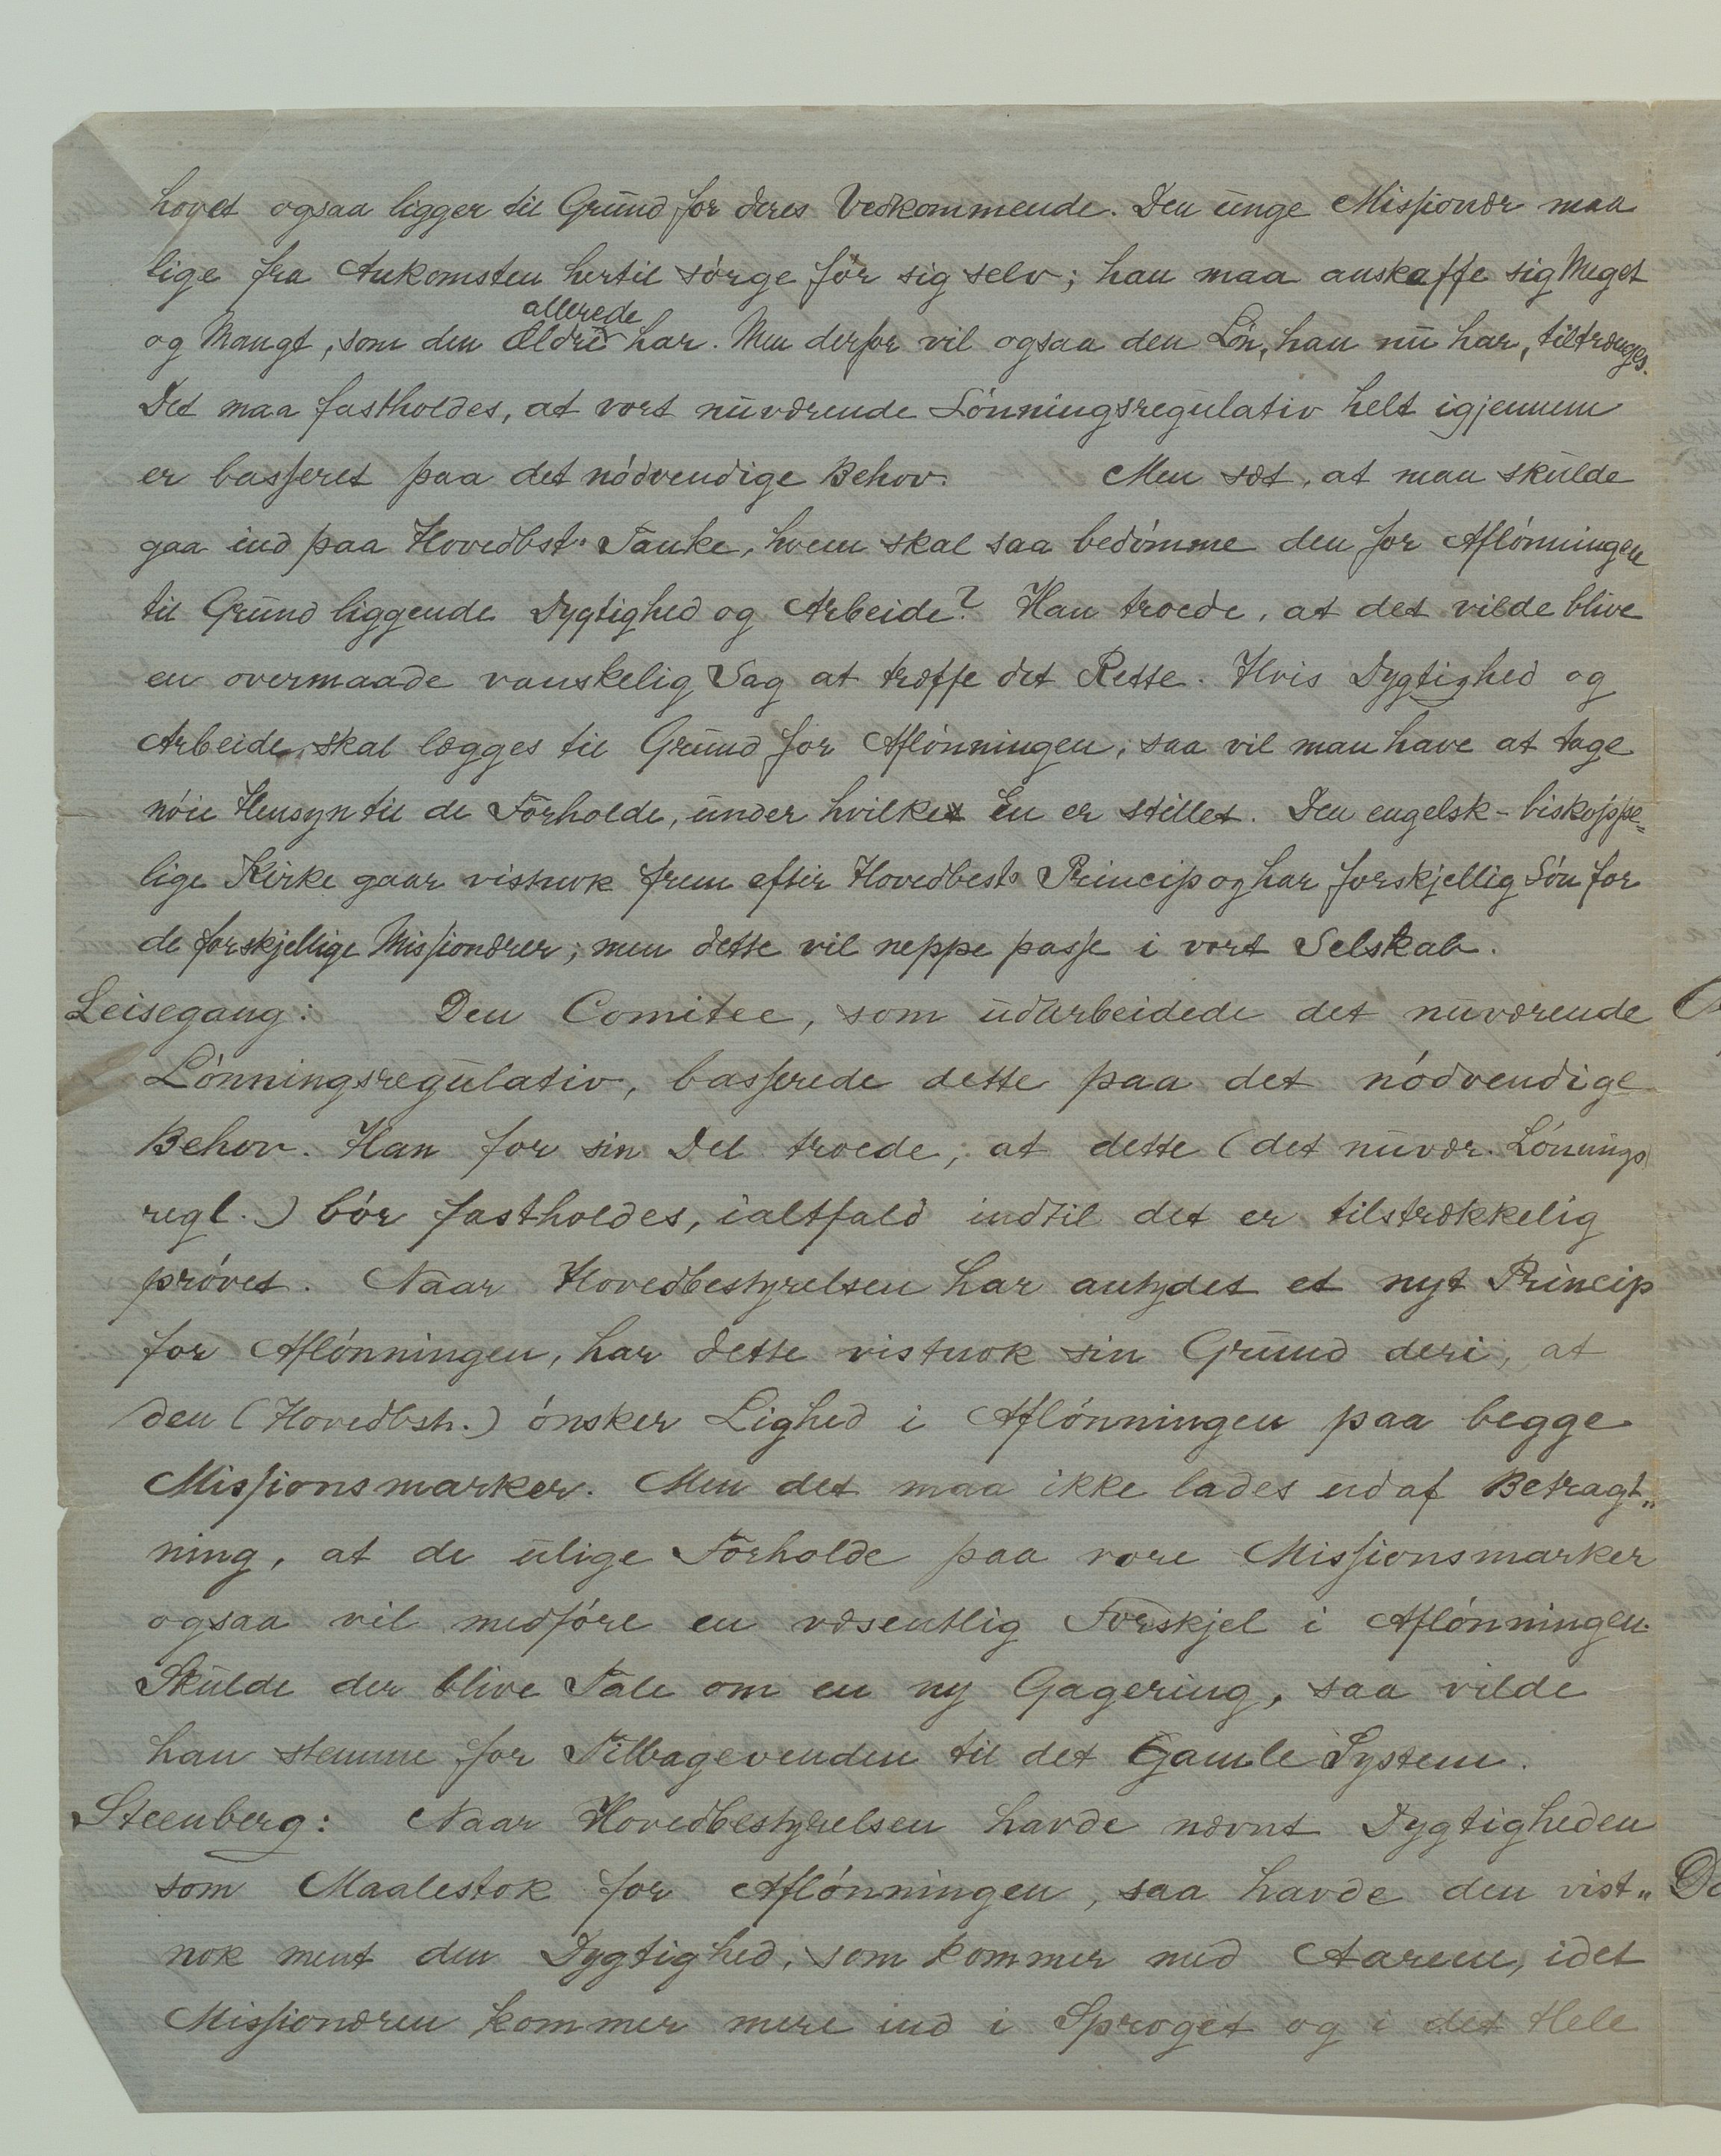 hovet ogsaa ligger til Grund for deres Vedkommende. Den unge Missionær maa
lige fra Ankomsten hertil sørge for sig selv; han maa anskaffe sig Meget
allerede
og Mangt, som den Ældre har. Men derfor vil ogsaa den Løn, han nu har, tiltrænges.
Det maa fastholdes, at vort nuværende Lønningsregulativ helt igjennem
er basseret paa det nødvendige Behov. Men sæt, at man skulde
gaa ind paa Hovedbst. Tanke, hvem skal saa bedømme den for Aflønningen
til Grund liggende Dygtighed og Arbeide? Han troede, at det vilde blive
en overmaade vanskelig Sag at træffe det Rette. Hvis Dygtighed og
Arbeide skal lægges til Grund for Aflønningen, saa vil man have at tage
nøie Hensyn til de Forholde, under hvilket En er stillet. Den engelsk-biskoppe„
lige Kirke gaar vistnok frem efter Hovedbests Princip og har forskjellig Løn for
de forskjellige Missionærer; men dette vil neppe passe i vort Selskab.
Leisegang: Den Comitee, som udarbeidede det nuværende
Lønningsregulativ, basserede dette paa det nødvendige
Behov. Han for sin Del troede, at dette (det nuvær. Lønnings
regl.) bør fastholdes, ialtfald indtil det er tilstrækkelig
prøvet. Naar Hovedbestyrelsen har antydet et nyt Princip
for Aflønningen, har dette vistnok sin Grund deri, at
den (Hovedbsts.) ønsker Lighed i Aflønningen paa begge
Missionsmarker. Men det maa ikke lades ud af Betragt„
ning, at de ulige Forholde paa vore Missionsmarker
ogsaa vil medføre en væsentlig Forskjel i Aflønningen.
Skulde der blive Tale om en ny Gagering, saa vilde
han stemme for Tilbagevenden til det Gamle System.
Steenberg: Naar Hovedbestyrelsen havde nævnt Dygtigheden
som Maalestok for Aflønningen, saa havde den vist„
nok ment den Dygtighed, som kommer med Aarene, idet
Missionæren kommer mere ind i Sproget og i det Hele